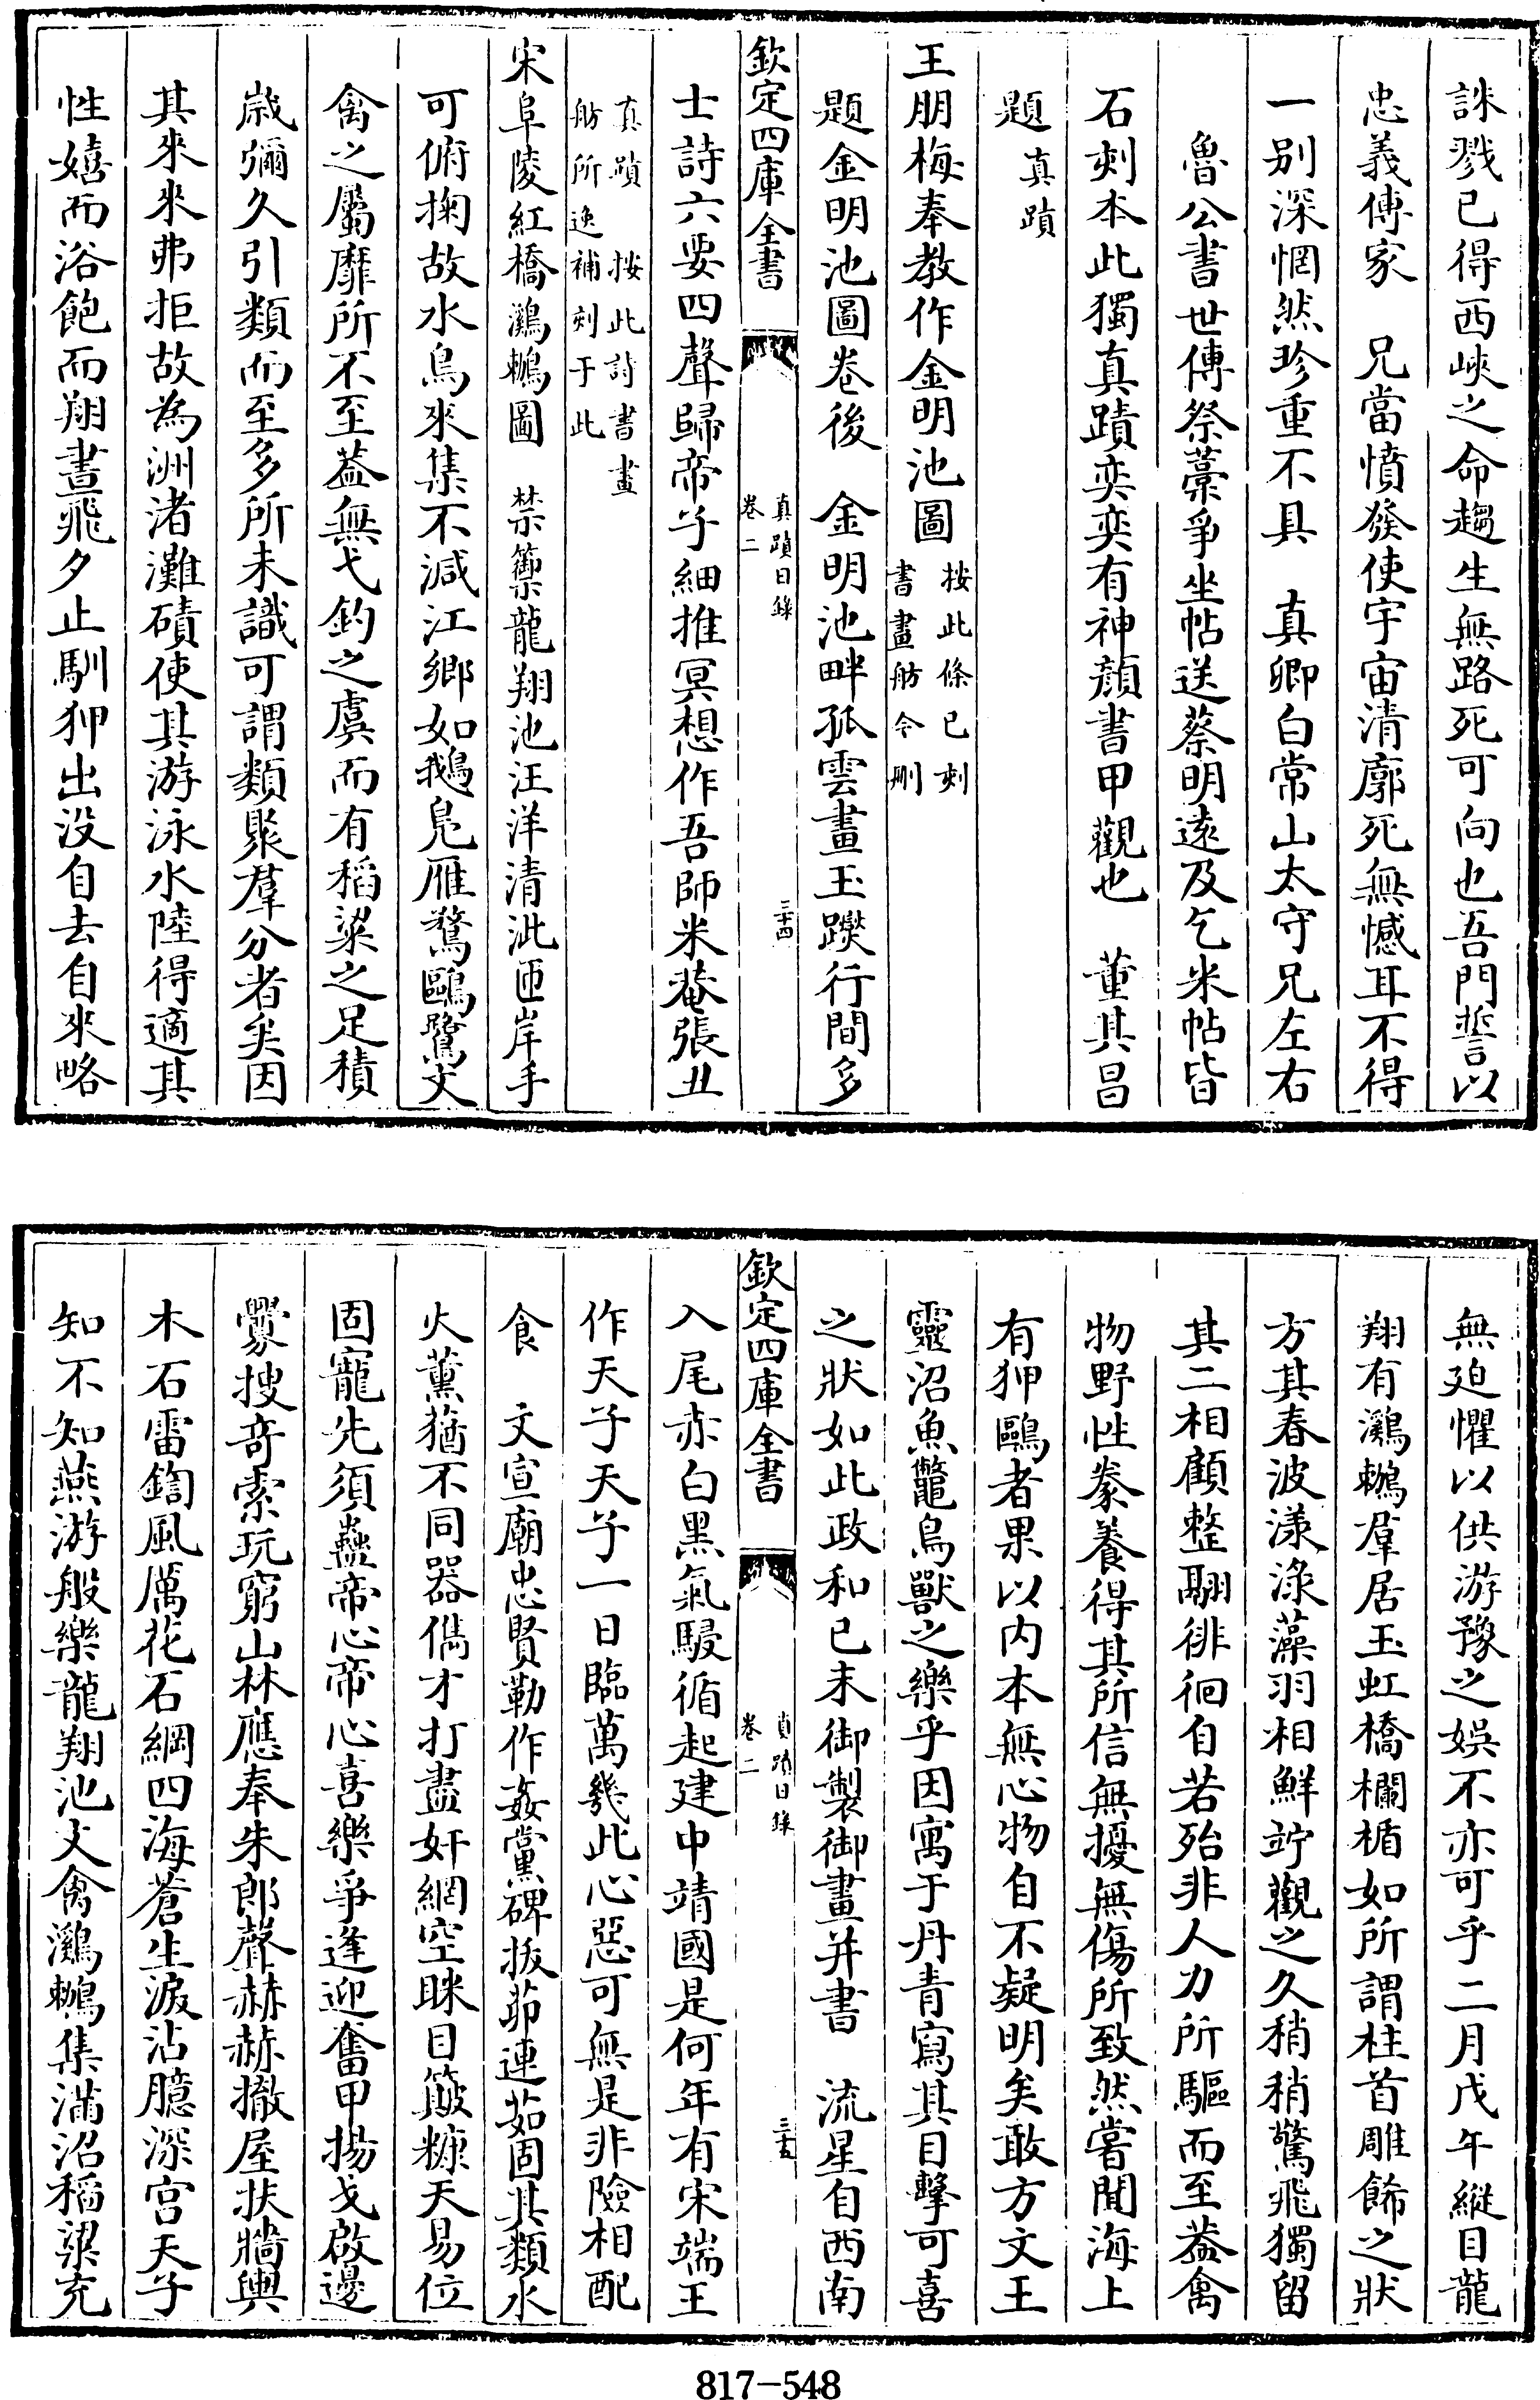 誅戮已得西峽之命趨生無路死可向也吾門誓以
忠義傳家　兄當憤發使宇宙清廓死無憾耳不得
一別深惘然珍重不具　真卿白常山太守兄左右
魯公書世傳祭藁爭坐帖送蔡明遠及乞米帖皆
石刻本此獨真蹟奕奕有神顏書甲觀也　董其昌
題真蹟
王朋梅奉教作金明池圖按此條已刻
書畫舫今刪
題金明池圖卷後　金明池畔孤雲畫玉躞行間多
欽定四庫全書
真蹟日錄
卷二
三十四
士詩六要四聲歸帝子細推冥想作吾師米菴張丑
真蹟　按此詩書畫
舫所逸補刻于此
宋阜陵紅橋鸂鶒圖　禁籞龍翔池汪洋清泚匝岸手
可俯掬故水鳥來集不減江鄉如鵝鳧雁鶩鷗鷺文
禽之屬靡所不至葢無弋釣之虞而有稻粱之足積
歲彌久引類而至多所未識可謂類聚羣分者矣因
其來來弗拒故為洲渚灘磧使其游泳水陸得適其
性嬉而浴飽而翔晝飛夕止馴狎出没自去自來略
無廹懼以供游豫之娛不亦可乎二月戊午縱目龍
翔有鸂鶒羣居玉虹橋欄楯如所謂柱首雕餙之狀
方其春波漾淥藻羽相鮮竚觀之久稍稍驚飛獨留
其二相顧整翮徘徊自若殆非人力所驅而至葢禽
物野性豢養得其所信無擾無傷所致然嘗聞海上
有狎鷗者果以内本無心物自不疑明矣敢方文王
靈沼魚鼈鳥獸之樂乎因寓于丹青寫其目擊可喜
之狀如此政和已未御製御畫并書　流星自西南
欽定四庫全書
真蹟日錄
卷二
三十五
入尾赤白黑氣駸循起建中靖國是何年有宋端王
作天子天子一日臨萬幾此心惡可無是非險相配
食　文宣廟忠賢勒作姦黨碑拔茆連茹固其類水
火薰蕕不同器儁才打盡奸網空眯目簸糠天易位
固寵先須蠱帝心帝心喜樂爭逢迎奮甲揚戈啟邊
釁搜奇索玩窮山林應奉朱郎聲赫赫撤屋扶牆輿
木石雷鍧風厲花石綱四海蒼生淚沾臆深宮天子
知不知燕游般樂龍翔池文禽鸂鶒集滿沼稻粱充
817-548